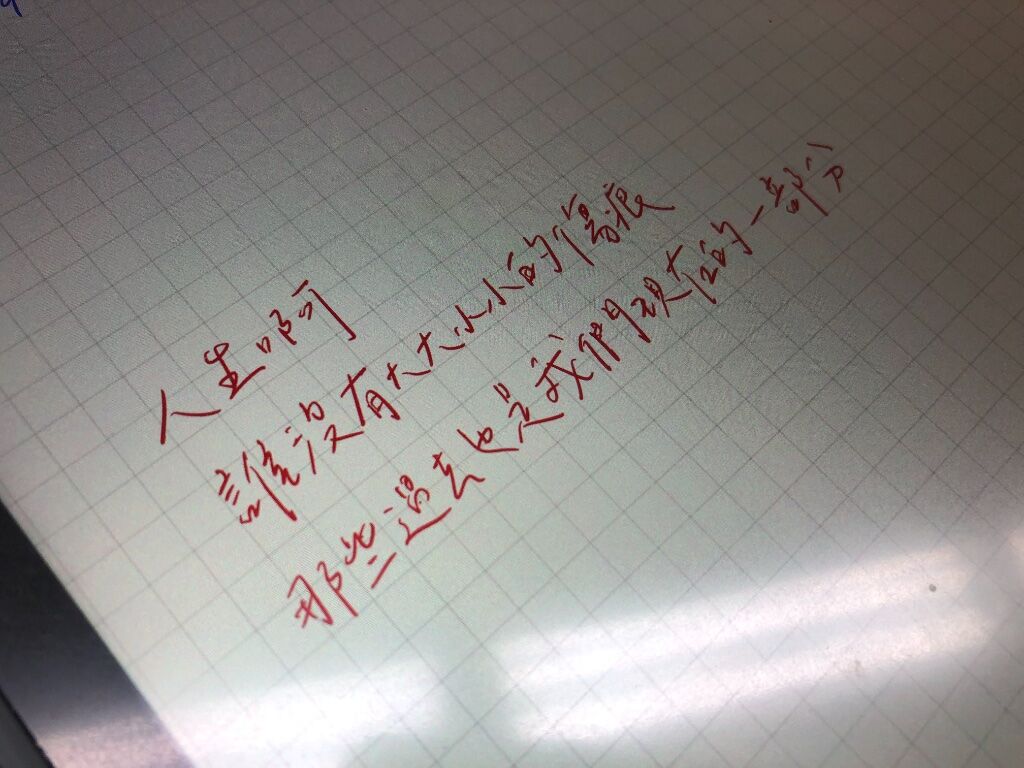 人生啊
誰沒有大大小小的傷痕
那些過去也是我們現在的一部分